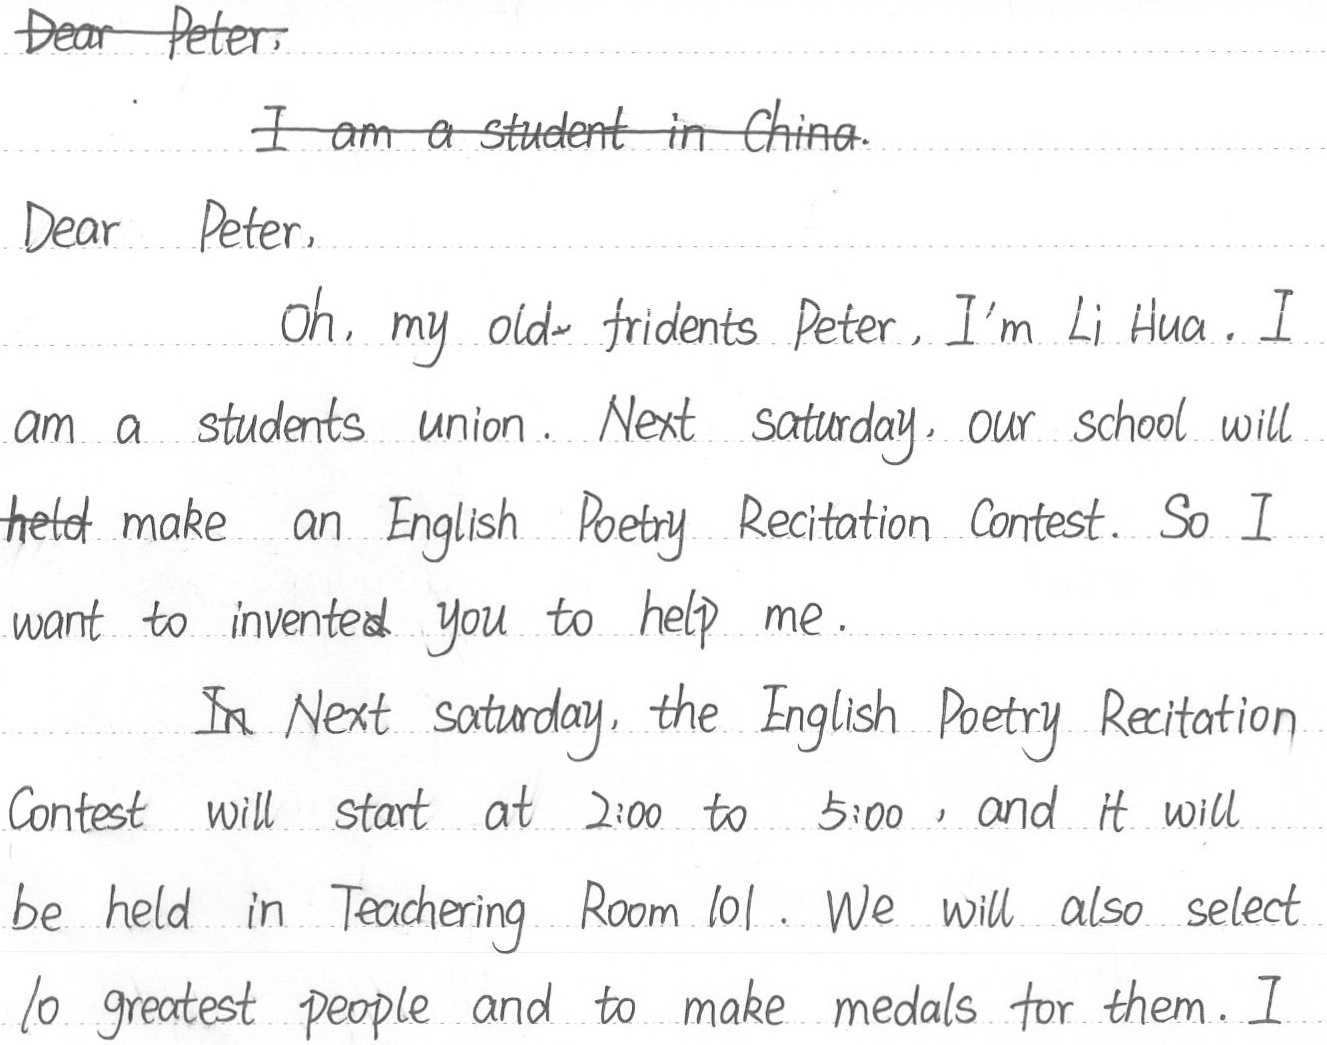 Dear Peter,
I am a student in China.
Dear Peter,
Oh, my old fridents Peter, I'm Li Hua. I
am a students union. Next saturday, our school will
held make an English Poetry Recitation Contest. So I
want to invented you to help me.
In Next saturday, the English Poetry Recitation
Contest will start at 2:00 to 5:00, and it will
be held in Teachering Room 101. We will also select
10 greatest people and to make medals for them. I